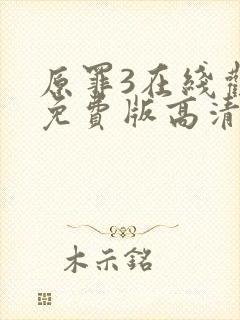 原罪3在线
免费版高清
木示铭